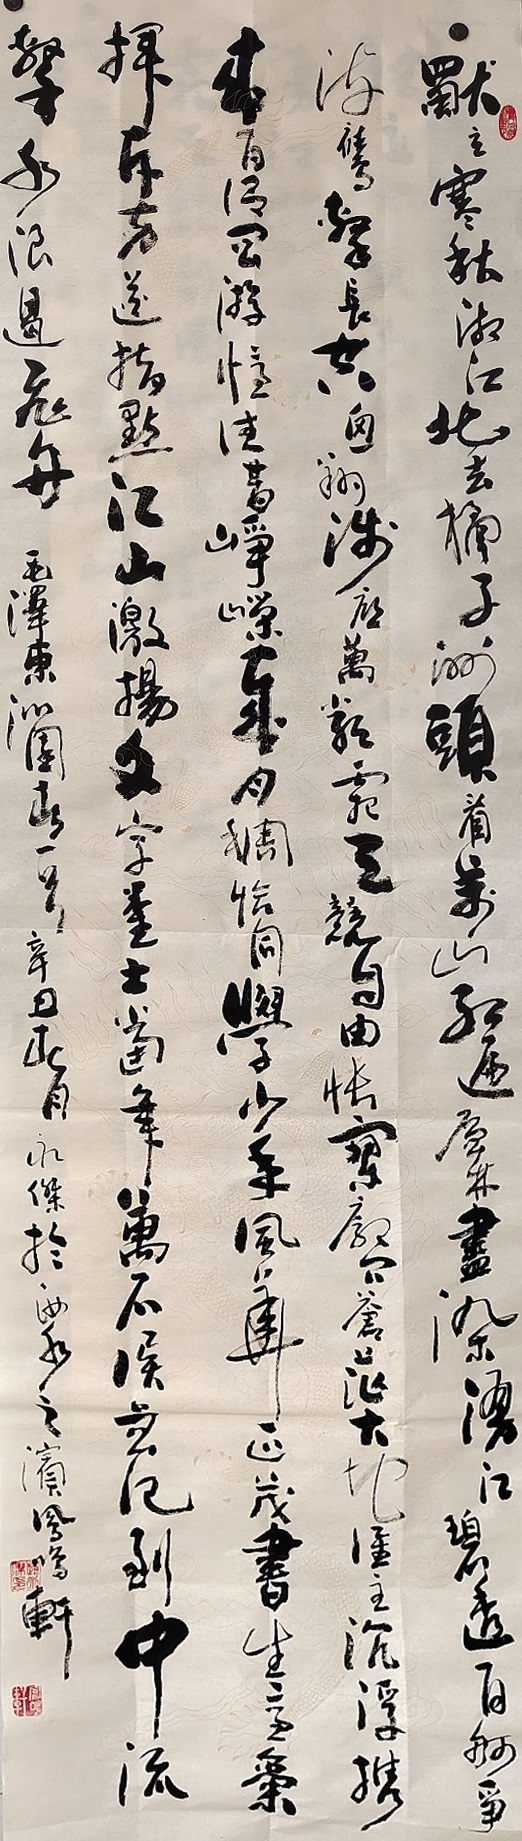 獨立寒秋湘江北去橘子洲頭看萬山紅遍層林盡染漫江碧透百舸爭
流鷹擊長空魚翔淺底萬類霜天競自由悵寥廓問蒼茫大地誰主沉浮攜
來百侶曾游憶往昔崢嶸歲月稠恰同學少年風華正茂書生意氣
揮斥方遒指點江山激揚文字糞土當年萬戶侯曾記到中流
擊水浪遏飛舟 毛澤東沁園春一首 辛丑春月永傑於汝水之濱鳳鳴軒